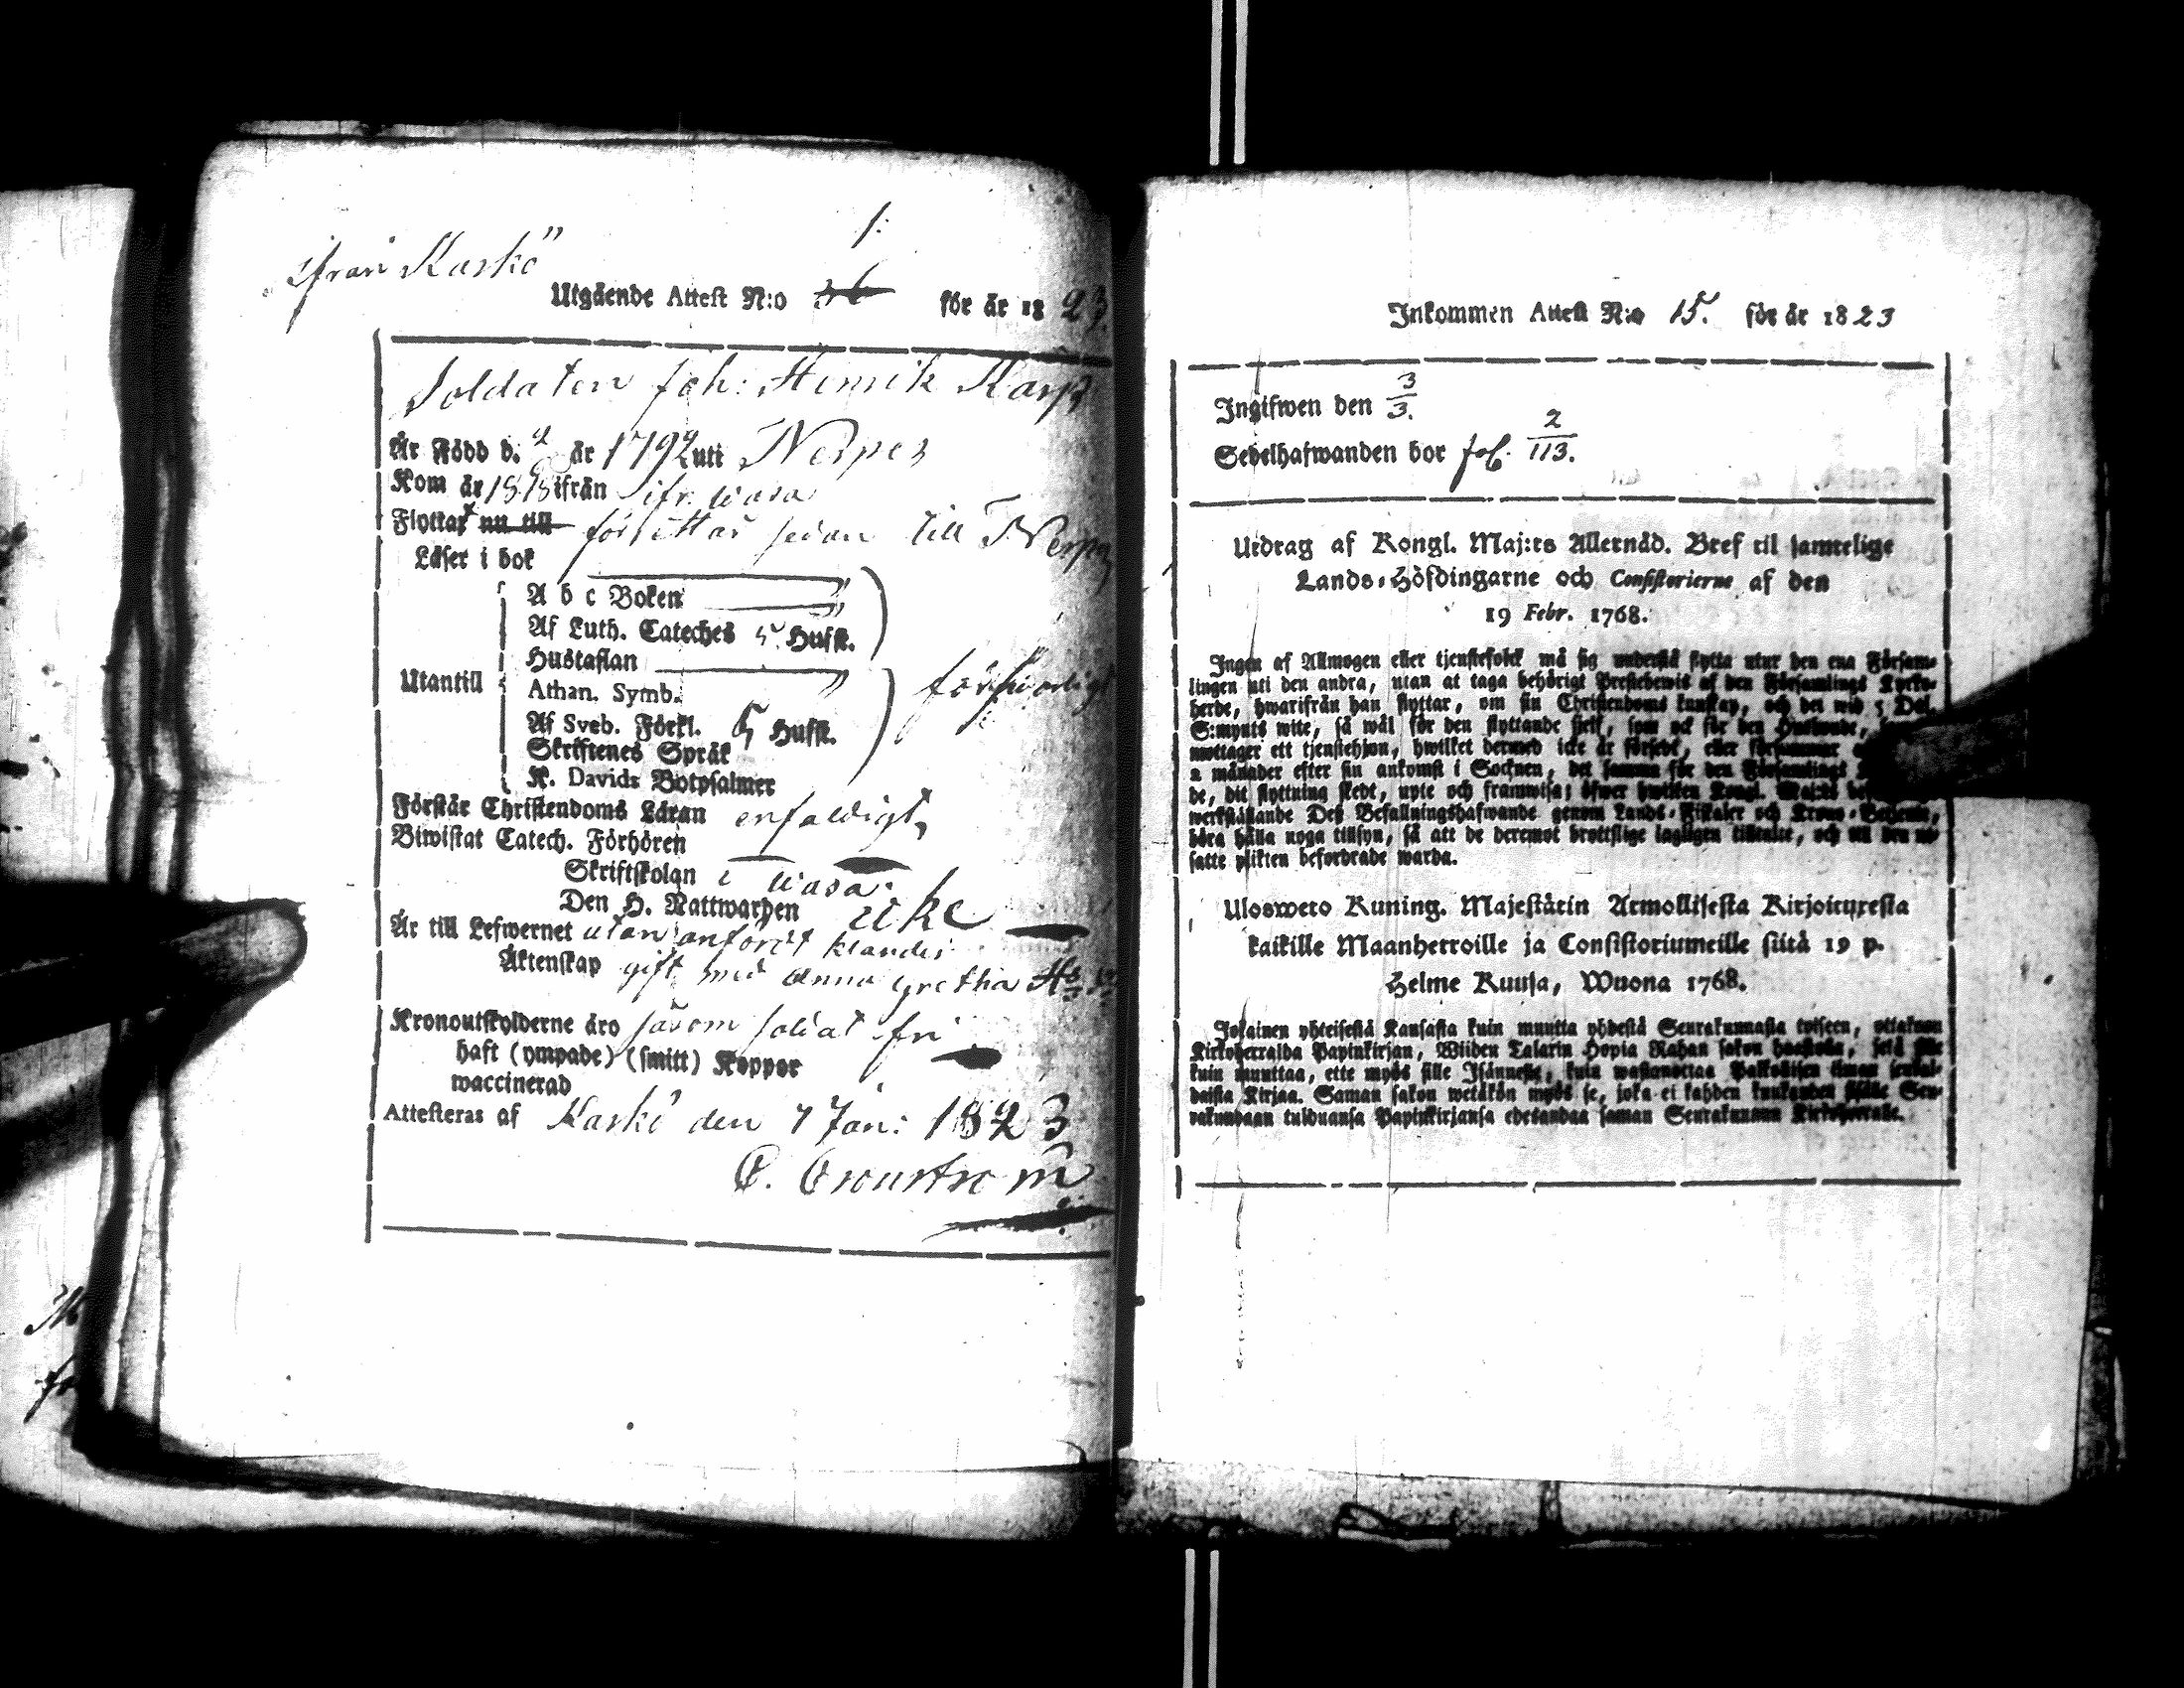 ifrån Kaskö
1:
Utgående Attest N:o för år 1823.
Soldaten Joh: Henrik Karp
Är Född d. år 1792 uti Nerpes
Kom år 1818 ifrån ifr. Wasa
Flyttar nu till sedan till Nerpes
Läser i bok
A b c Boken
Af Luth. Cateches 5 Hufst.
Hustaflan
Utantill
Athan. Symb.
Af Sveb. Förkl. 5 Hufst.
försvarligt
Skriftenes Språk
K. Davids Botpsalmer
Förstår Christendoms Läran enfaldigt,
Biwistat Catech. Förhören
Skriftskolan i Wasa.
Den H. Nattwarden
Är till Lefwernet utan anfördt klander
Äktenskap gift med Anna Gretha
Kronoutskylderne äro såsom soldat fri
haft (ympade) (smitt) Koppor
waccinerad
Attesteras af Kaskö den 7 Jan: 1823
Inkommen Attest N:o 15. för år 1823
Ingifwen den 3/3.
Sedelhafwanden bor fol. 2/113.
Utdrag af Kongl. Maj:ts Allernåd. Bref til samtelige
Lands-Höfdingarne och Consistorierne af den
19 Febr. 1768.
Ingen af Allmogen eller tjenstefolck må sig understå flytta utur den ena Försam-
lingen uti den andra, utan at taga behörigt Prestebewis af den Församlings Kyrko-
herde, hwarifrån han flyttar, om sin Christendoms kunskap, och det wid 5 Dal.
S:mynts wite, så wäl för den flyttande sielf, som ock för den Husbonde,
mottager ett tjenstehjon, hwilket dermed icke är försedt, eller försummar
2 månader efter sin ankomst i Socknen, det samma för den Församlings
de, dit flyttning skedt, upte och framwisa; öfwer hwilken Kongl. Maj:ts
werkställande Deß Befallningshafwande genom Lands-Fiskaler och Crono-Betjente,
böra hålla noga tillsyn, så att de deremot brottslige lagligen tilltalte, och till den ut-
satte plikten befordrade warda.
Ulosweto Kuning. Majestätin Armollisesta Kirjoituxesta
kaikille Maanherroille ja Consistoriumeille siitä 19 p.
Helme Kuusa, Wuona 1768.
Jokainen yhteisestä Kansasta kuin muutta yhdestä Seurakunnasta toiseen, ottakoon
Kirkoherralda Papinkirjan, Wiiden Talarin Hopia Rahan sakon haastolla, sekä sille
kuin muuttaa, ette myös sille Isännelle, kuin wastanottaa Palkollisen ilman senkal-
daista Kirjaa. Saman sakon wetäkön myös se, joka ei kahden kuukauden sisälle Seu-
rakundaan tulduansa Papinkirjansa edesandaa saman Seurakunnan Kirkoherralle.